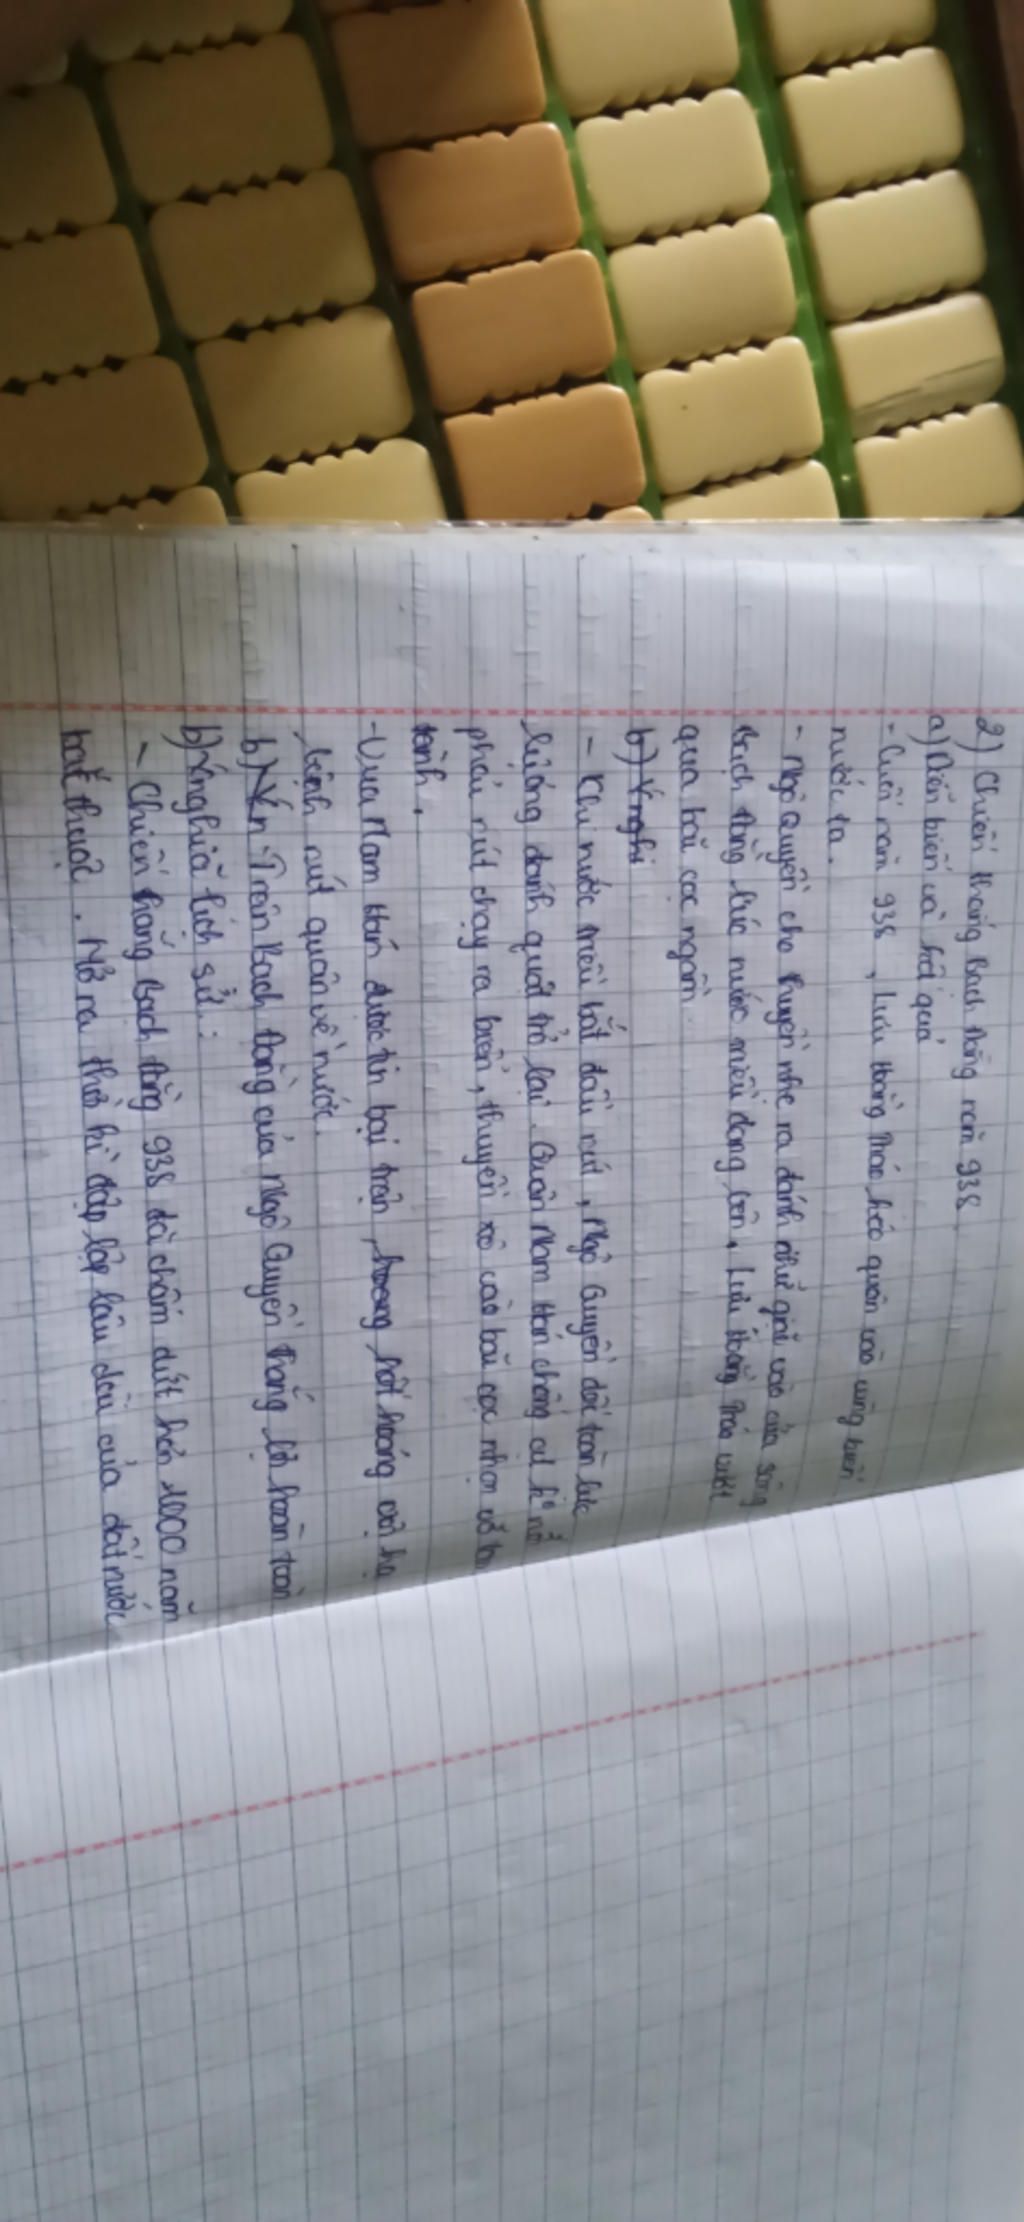 2) Chiến thắng Bạch Đằng năm 938
a) Diễn biến và kết quả
- Cuối năm 938, Lưu Hoằng Tháo kéo quân vào vùng biển
nước ta.
- Ngô Quyền cho thuyền nhẹ ra đánh nhử giặc vào cửa sông
Bạch Đằng lúc nước triều dâng lên, Lưu Hoằng Tháo vượt
qua bãi cọc ngầm.
b) Ý nghĩ
- Khi nước triều bắt đầu rút, Ngô Quyền dốc toàn lực
lượng đánh quật trở lại. Quân Nam Hán chống cự k° nổi
phải rút chạy ra biển, thuyền xô vào bãi cọc nhọn vỡ tan
tành.
- Vua Nam Hán được tin bại trận, hốt hoảng vội hạ
lệnh rút quân về nước.
b) Trận Bạch Đằng của Ngô Quyền thắng lợi hoàn toàn
b) Ý nghĩa lịch sử:
- Chiến thắng Bạch Đằng 938 đã chấm dứt hơn 1000 năm
bắc thuộc. Mở ra thời kì độc lập lâu dài của đất nước